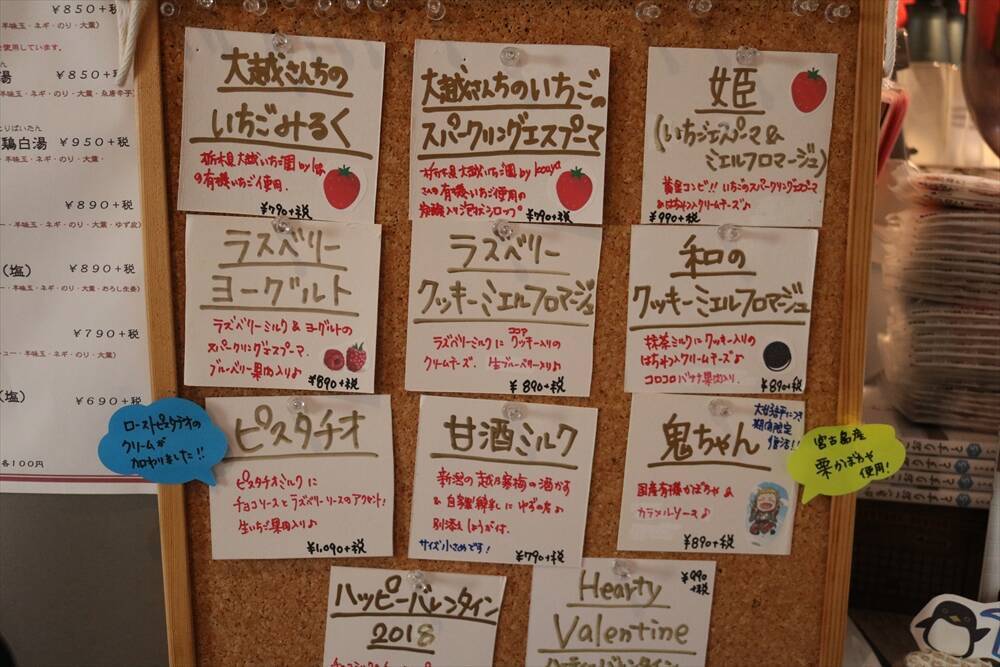 ¥850+税
半味玉・ネギ・のり・大葉)
使用しています。
湯 ¥850+税
半味玉・ネギ・のり・大葉・糸唐辛子)
とりぱいたん
鶏白湯 ¥950+税
・半味玉・ネギ・のり・大葉・
¥890+税
・半味玉・ネギ・のり・大葉・ゆず皮)
(塩) ¥890+税
ー・半味玉・ネギ・のり・大葉・おろし生姜)
¥790+税
シュー・半味玉・ネギ・のり・大葉)
(塩) ¥690+税
各100円
大越さんちの
いちごみるく
栃木県大越いちご園by
の有機いちご使用.
¥790+税
大越さんちのいちごの
スパークリングエスプーマ
栃木県大越いちご園by kouya
さんの有機いちご使用の
炭酸入り泡状シロップ
¥790+税
姫
(いちごエスプーマ&
ミエルフロマージュ)
黄金コンビ!!いちごのスパークリングエスプーマ
&はちみつ入りクリームチーズ♪
¥990+税
ラズベリー
ヨーグルト
ラズベリーミルク&ヨーグルトの
スパークリングエスプーマ.
ブルーベリー果肉入り♪
¥890+税
ラズベリー
クッキーミエルフロマージュ
ラズベリーミルクにココアクッキー入りの
クリームチーズ. 生ブルーベリー入り♪
¥890+税
和の
クッキーミエルフロマージュ
抹茶ミルクにクッキー入りの
はちみつ入りクリームチーズ♪
コロコロバナナ果肉入り.
¥890+税
ローストピスタチオの
クリームが
加わりました!!
ピスタチオ
ピスタチオミルクに
チョコソースとラズベリーソースのアクセント!
生いちご果肉入り♪
¥1,090+税
甘酒ミルク
新潟の越乃寒梅の酒かす
&自家製練乳にゆずの香♪
別添えしょうが付.
サイズ小さめです!
¥790+税
鬼ちゃん
大好評につき
期間限定
復活!!
国産有機かぼちゃ&
カラメルソース♪
¥890+税
宮古島産
栗かぼちゃ
使用!
ハッピーバレンタイン
2018
Hearty
Valentine
¥990
+税
ハーティーバレンタイン